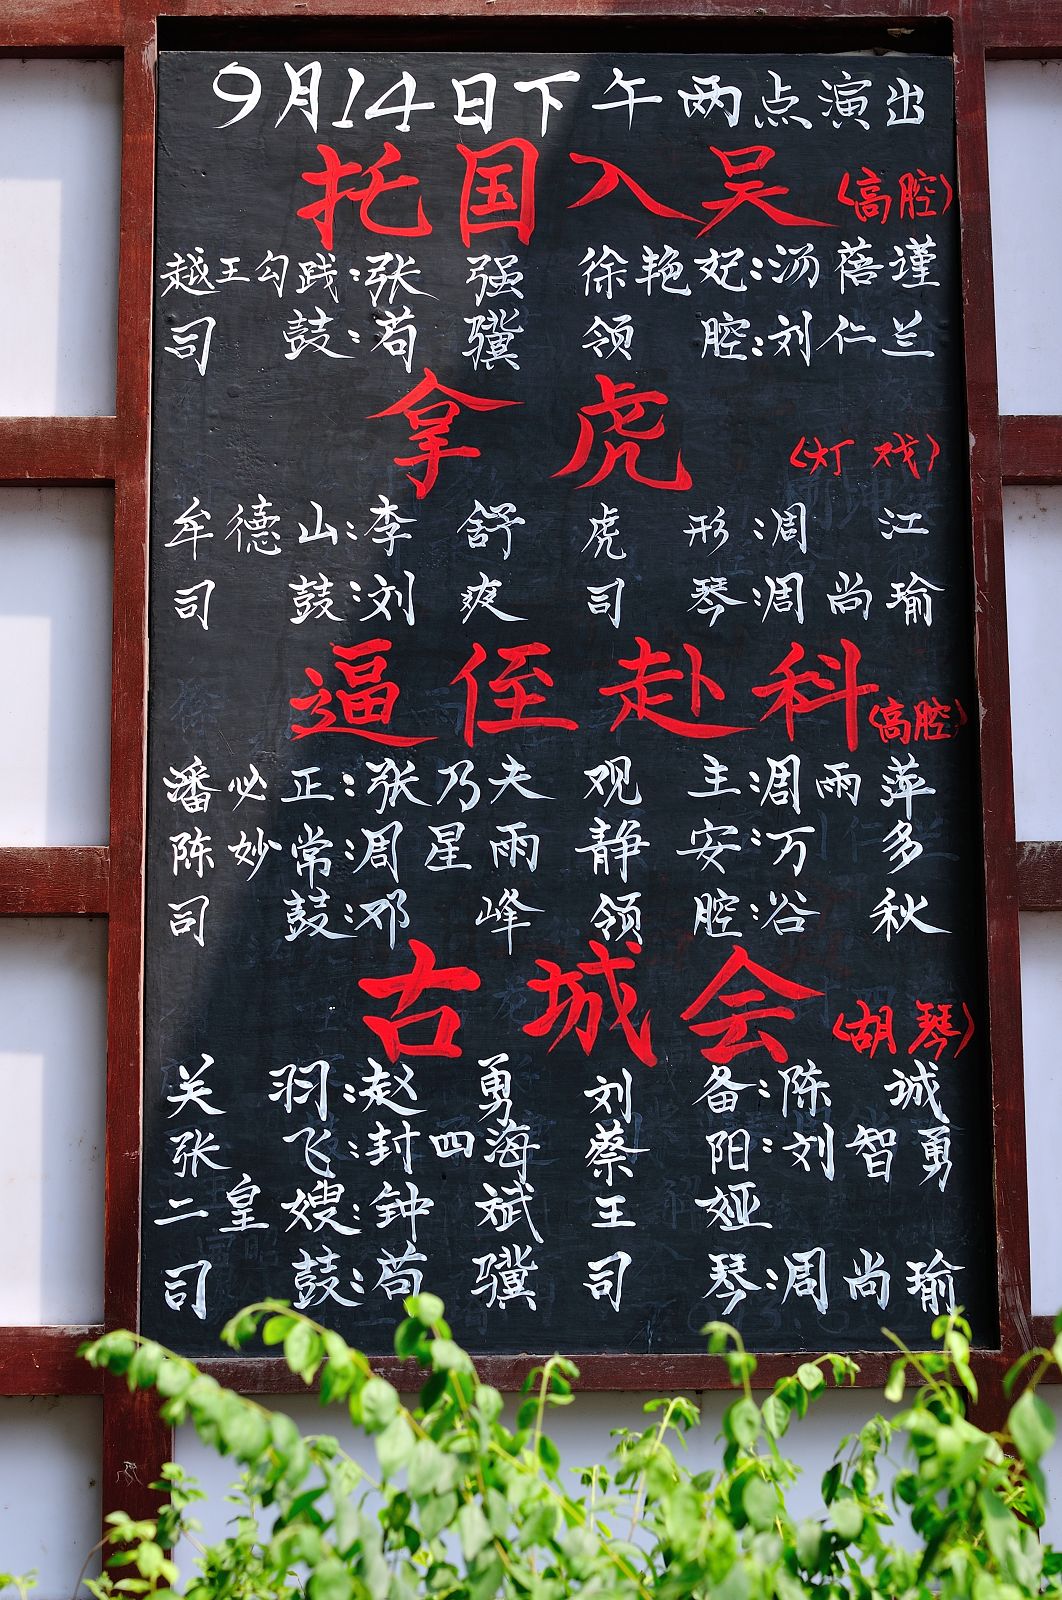 9月14日下午两点演出
托国入吴(高腔)
越王勾践:张强 徐艳妃:汤蓓谨
司鼓:苟骥 领腔:刘仁兰
拿虎(灯戏)
牟德山:李舒 虎形:周江
司鼓:刘爽 司琴:周尚瑜
逼侄赴科(高腔)
潘必正:张乃夫 观主:周雨萍
陈妙常:周星雨 静安:万多
司鼓:邓峰 领腔:谷秋
古城会(胡琴)
关羽:赵勇 刘备:陈诚
张飞:封四海 蔡阳:刘智勇
二皇嫂:钟斌 王娅
司鼓:苟骥 司琴:周尚瑜